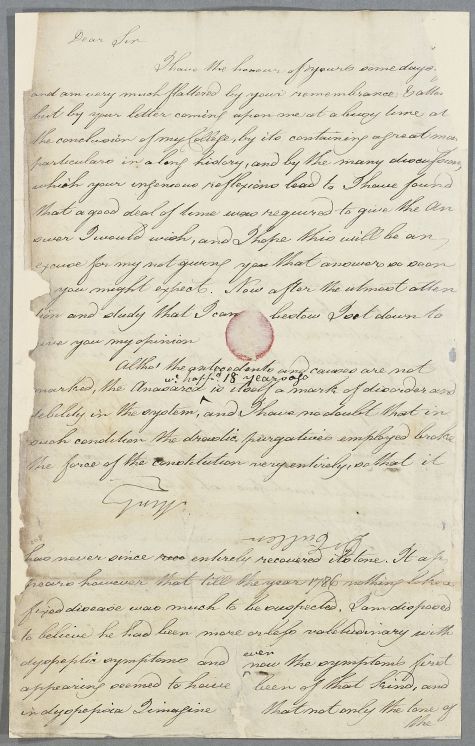 Dear Sir
I have the honour of yours some days
and am very much flattered by your remembrance &
but by your letter coming upon me at a busy time, at
the conclusion of my College, by its containing a great many
particulars in a long history, and by the many discussions
which your ingenious reflexions lead to I have found
that a good deal of time was required to give the An
swer I would wish, and I hope this will be an
excuse for my not giving you that answer so soon
you might expect. Now after the utmost atten
tion and study that I can bestow I set down to
give you my opinion
Altho' the antecedents and causes are not
wc. happd. 18 years ago
marked, the Anasarca is itself a mark of disorder and
debility in the system, ^ and I have no doubt that in
such condition the drastic purgatives employed broke
the force of the constitution very entirely, so that it
Dr Cullen
has never since entirely recovered its tone. It ap
pears however that till the year 1786 nothing like a
fixed disease was much to be suspected. I am disposed
to believe he had been more or less valetudinary with
even
dyspeptic symptoms and ^ now the symptoms first
appearing seemed to have been of that kind, and
in dyspepsia I imagine that not only the tone of
the